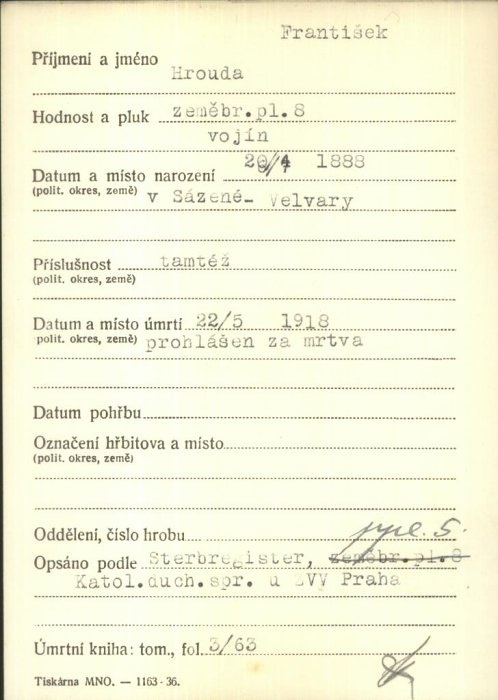 František
Příjmení a jméno
Hrouda
Hodnost a pluk zeměbr.pl.8
vojín
Datum a místo narození 1888
(polit. okres, země) v Sázené- Velvary
Příslušnost tamtéž
(polit. okres, země)
Datum a místo úmrtí 22/5 1918
polit. okres, země) prohlášen za mrtva
Datum pohřbu
Označení hřbitova a místo
(polit. okres, země)
Oddělení, číslo hrobu
Opsáno podle Sterbregister, zeměbr.pl.8
Katol.duch.spr. u ZVV Praha
Úmrtní kniha: tom., fol. 3/63
Tiskárna MNO. — 1163-36.